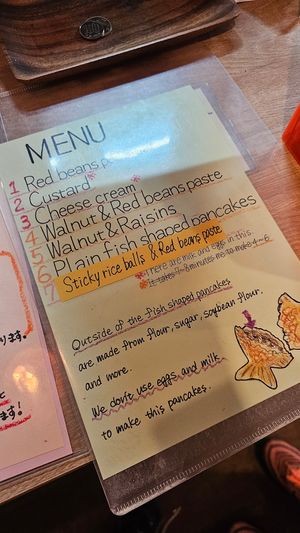 MENU
1 Red beans paste
2 Custard*
3 Cheese cream*
4 Walnut & Red beans paste
5 Walnut & Raisins
6 Plain fish shaped pancakes
7 Sticky rice balls & Red beans paste
*There are milk and eggs in this.
It takes 7~8 minutes me to make 4~6
Outside of the fish shaped pancakes
are made from flour, sugar, soybean flour.
and more.
We don't use eggs and milk
to make this pancakes.
ります.
と
ます!